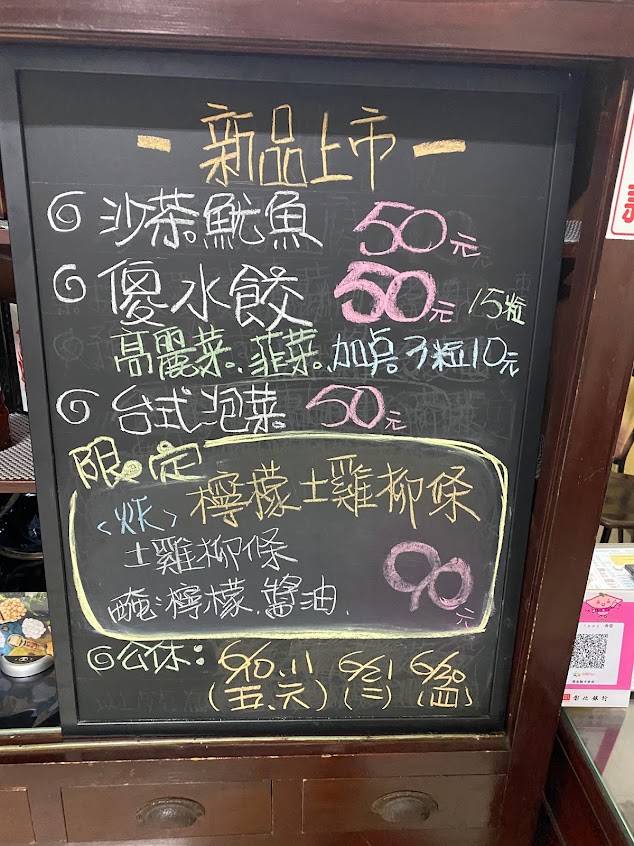 - 新品上市 -
沙茶魷魚 50元
傻水餃 50元 15粒
高麗菜、韮菜、加点3粒10元
台式泡菜 50元
限定
檸檬土雞柳條
<炸>
土雞柳條
醃:檸檬.醬油. 90元
公休: 6/10.11 6/21 6/30
(五、六) (二) (四)
彰化銀行